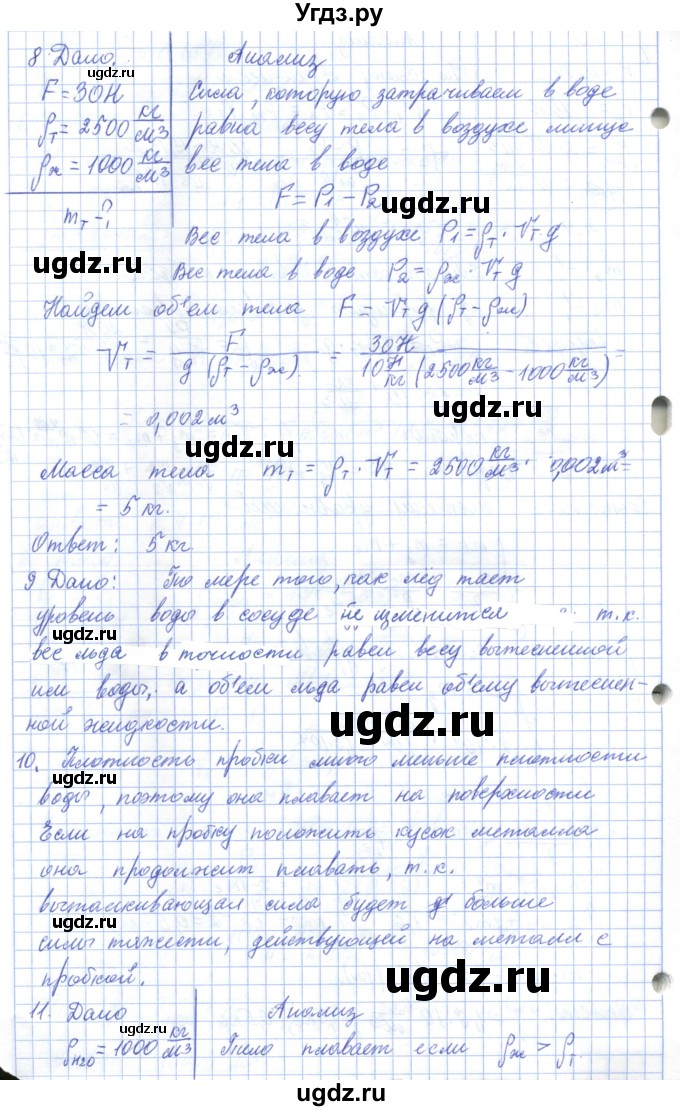 Угдз.ру
8 Дано.
Анализ
F = 30Н
Сила, которую затрачиваем в воде
ρт = 2500 кг/м3
равна весу тела в воздухе минус
ρж = 1000 кг/м3
вес тела в воде
F = P1 - P2
mт - ?
Вес тела в воздухе P1 = ρт · Vт g
Вес тела в воде P2 = ρж · Vт g
Найдем об'ем тела F = Vт g (ρт - ρж)
Vт = F / g (ρт - ρж) = 30Н / 10 Н/кг (2500 кг/м3 - 1000 кг/м3) =
= 0,002 м3
Масса тела mт = ρт · Vт = 2500 кг/м3 · 0,002 м3 =
= 5 кг.
Ответ: 5 кг
9 Дано: По мере того, как лёд тает
уровень воды в сосуде не изменится т.к.
вес льда в точности равен весу вытесненной
им воды, а об'ем льда равен об'ему вытеснен-
ной жидкости.
10. Плотность пробки много меньше плотности
воды, поэтому она плавает на поверхности
Если на пробку положить кусок металла
она продолжит плавать, т.к.
выталкивающая сила будет больше
силы тяжести, действующей на металл с
пробкой.
11. Дано
Анализ
ρH2O = 1000 кг/м3
Тело плавает если ρж > ρт.
ugdz.ru
ugdz.ru
ugdz.ru
ugdz.ru
ugdz.ru
ugdz.ru
ugdz.ru
ugdz.ru
ugdz.ru
ugdz.ru
ugdz.ru
ugdz.ru
ugdz.ru